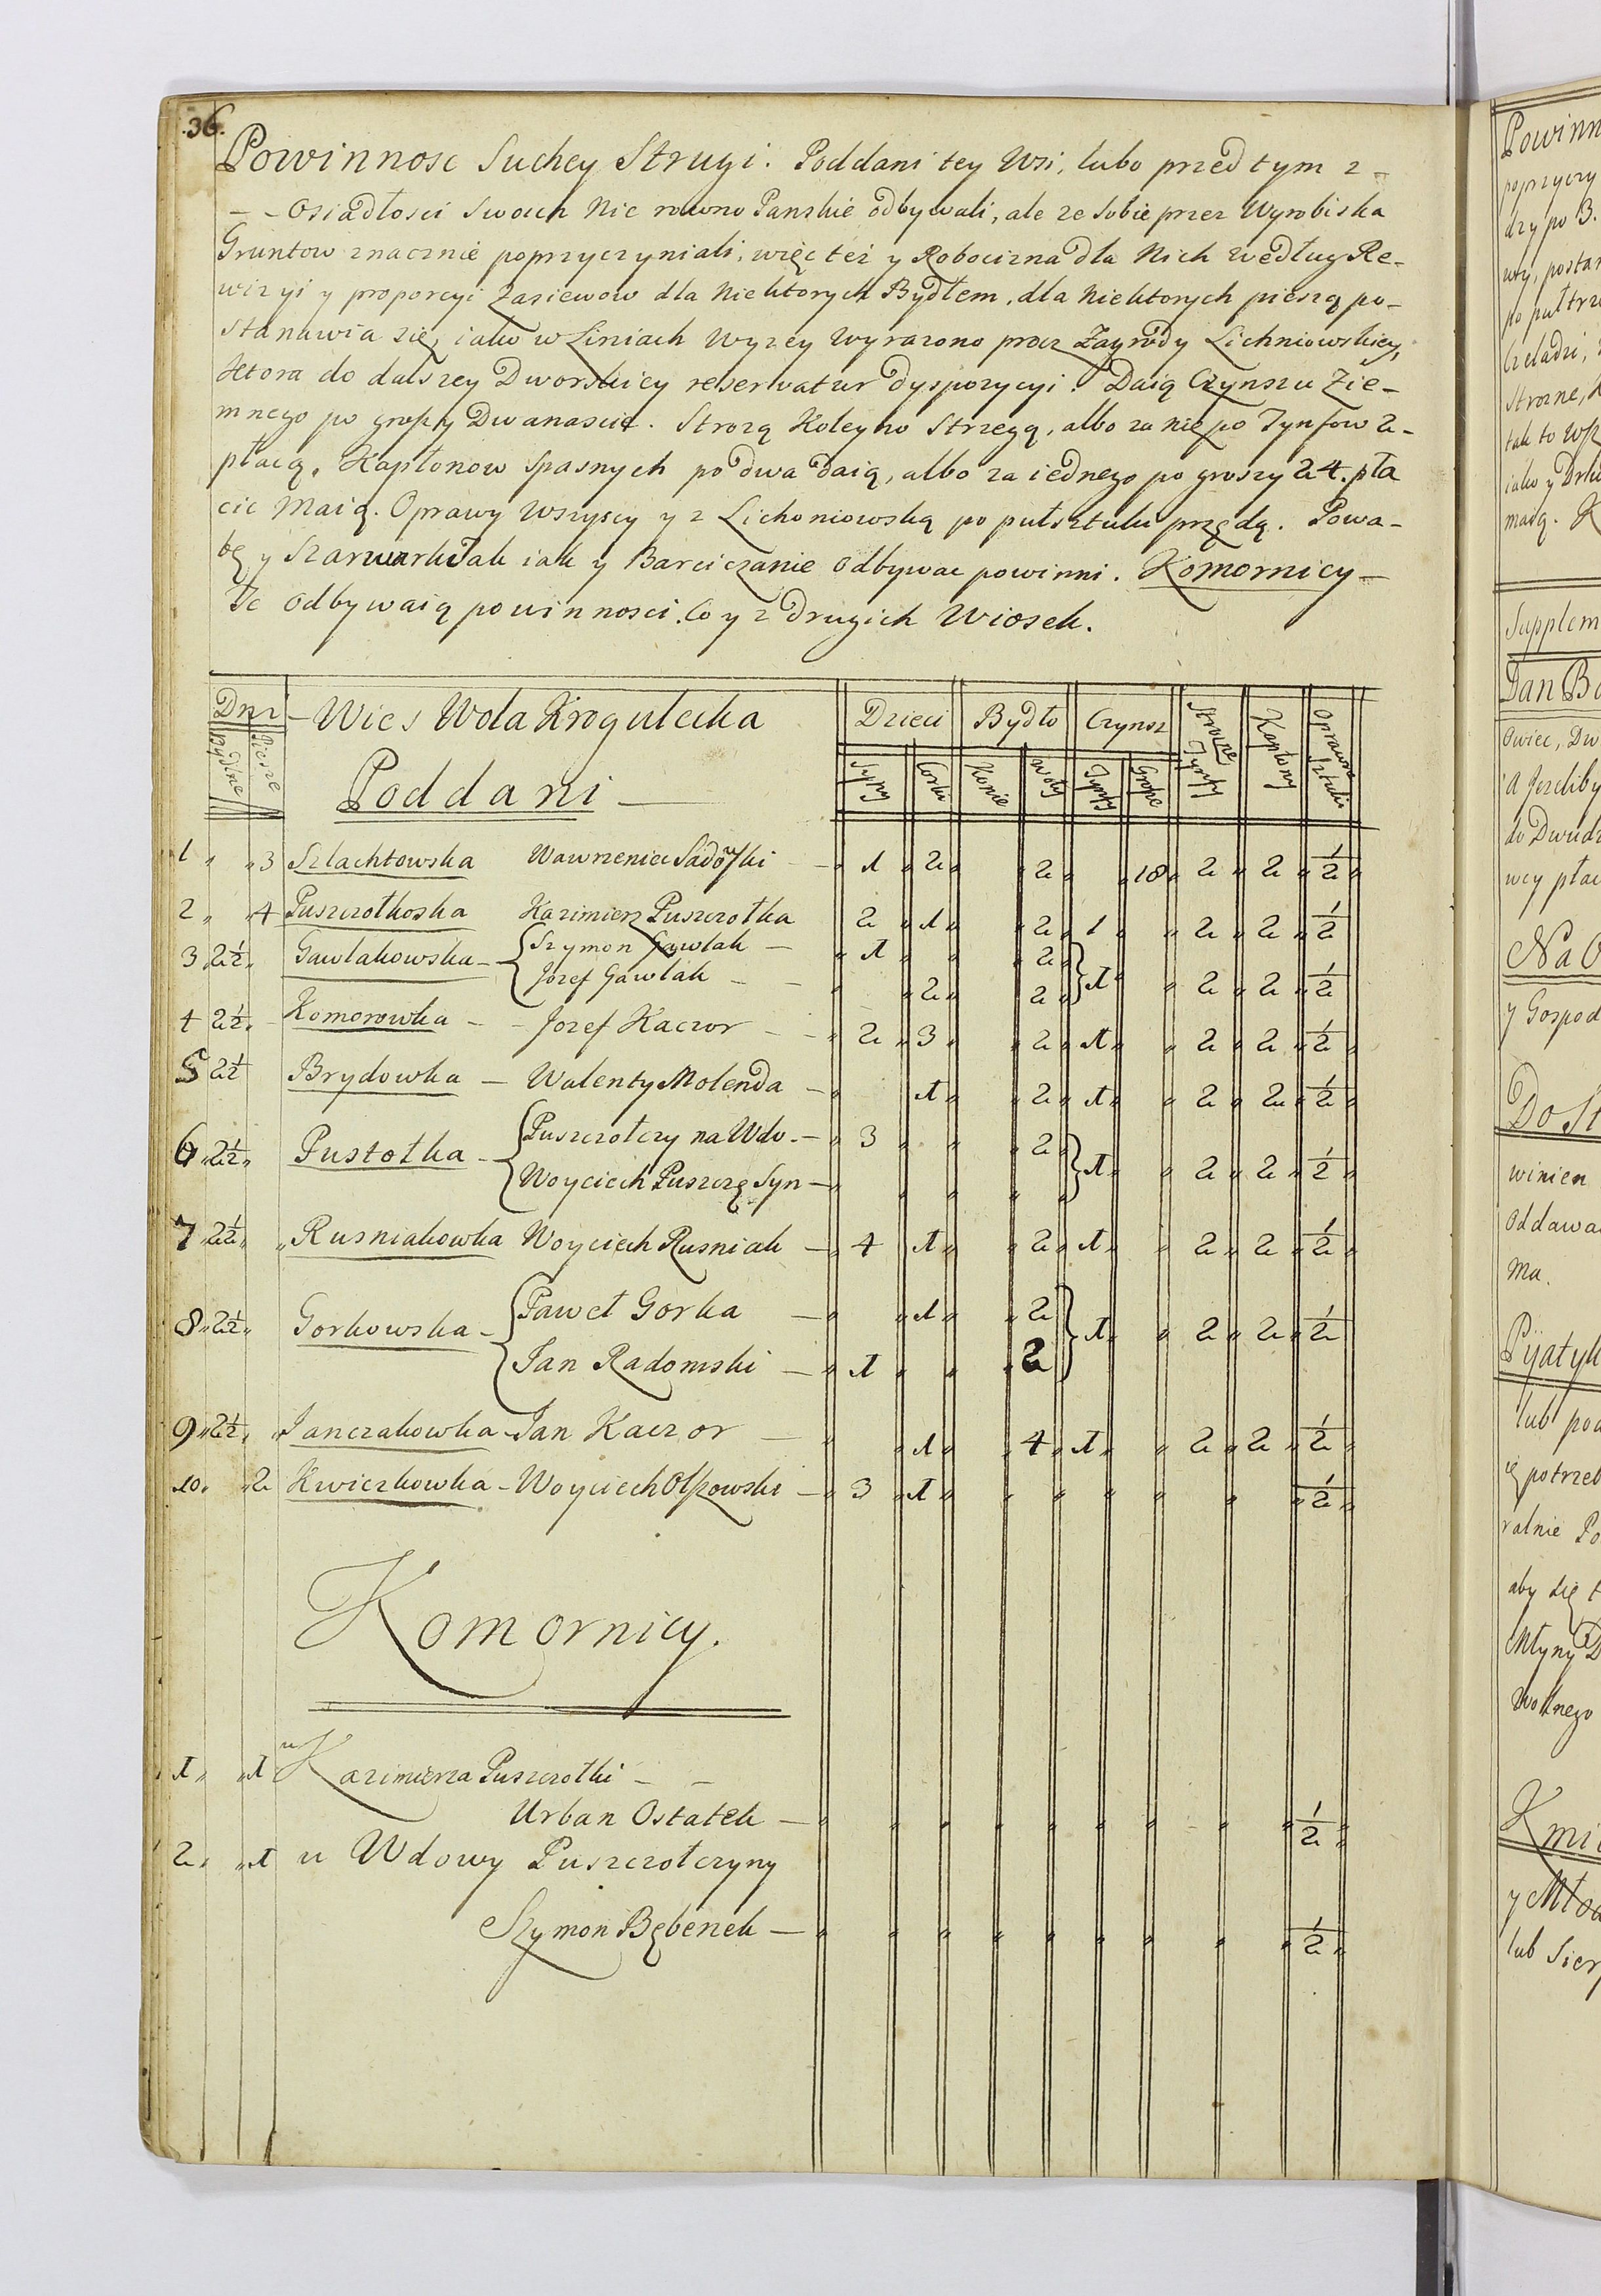 .36.
Powinnosc Suchey Strugi. Poddani tey Wsi, lubo przed tym z -
- - Osiadłosci swoich Nic rowno Panskie odbywali, ale ze sobie przez Wyrobiska
Gruntow znacznie poprzyczyniali, więc też y Robocizna dla Nich według Re-
wizyi y proporcyi Zasiewow dla Niektorych Bydłem, dla Niektorych pieszą po-
stanawia się, iako w Liniach wyzey wyrazono procz Zagrody Lichniowskiey,
Ktora do dalszey Dworskiey reservatur dyspozycyi. Daią Czynszu Zie-
mnego po groszy Dwanascie. Strozą Koleyno Strzegą, albo za nię po Tynfow 2-
płacą. Kapłonow spasnych po dwa daią, albo za iednego po groszy 24. pła
cic Maią. Oprawy Wszyscy y z Lichoniowską po pułsztuku przędą. Powa-
bę y Szarwarki Tak iak y Barciczanie odbywac powinni. Komornicy -
Te odbywaią powinnosci. Co y z drugich Wiosek.
Dni - Wies Wola Krogulecka Dzieci Bydło Czynsz Strozne Tynfy Kapłony Oprawne Sztuki
Bydlne Piesze Poddani - Syny Corki Konie Woły Tynfy Grosze
1 " " 3 Szlachtowska Wawrzeniec Sadowski - 1 2 2 18 2 2 1/2
2 " " 4 Puszczotkoska Kazimierz Puszczotka 2 1 2 1 2 2 1/2
3 2 1/2 " Gawlakowska - { Szymon Gawlak - 1 2 } 1 2 2 1/2
Jozef Gawlak - - 2 2
4 2 1/2 " - Komorowka - - Jozef Kaczor - - 2 3 2 1 2 2 1/2
5 2 1/2 Brydowka - Walenty Molenda - 1 2 1 2 2 1/2
6 " 2 1/2 " Pustotka - { Puszczotczy na Wdo. - 3 2 } 1 2 2 1/2
Woyciech Puszczę Syn -
7 " 2 1/2 " " Rusniakowka Woyciech Rusniak - 4 1 2 1 2 2 1/2
8 " 2 1/2 " Gorkowska - { Paweł Gorka - 1 2 } 1 2 2 1/2
Jan Radomski - 1 2
9 " 2 1/2 " " Janczakowka - Jan Kaczor - 1 4 1 2 2 1/2
10 " " 2 Kwiczkowka - Woyciech Olszowski - 3 1 1/2
Komornicy.
1 " " 1 u Kazimierza Puszczotki - -
Urban Ostatek - 1/2
2 " " 1 u Wdowy Puszczotczyny
Szymon Bębenek - 1/2
Powinn
poprzyczy
dzy po 3.
Czeladzi,
Strozne,
mają. K
Supplem
Dan Ba
Owiec, Dw
A Jezeliby
do Dwuda
wcy płac
Na O
y Gospod
Do St
winien
Oddawa
Ma.
Pijatyk
lub pow
potrzeb
ralnie Po
aby się t
Młyny D
Wolnego
Kmi
y Młoc
lub Sierp